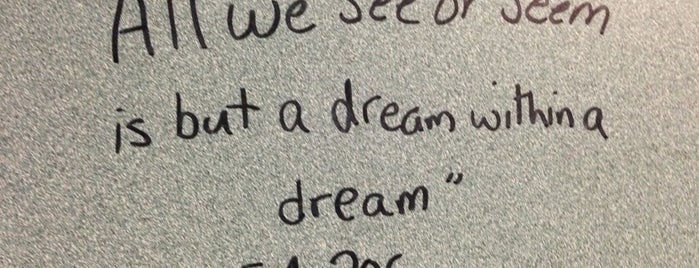 All we see or seem
is but a dream within a
dream"